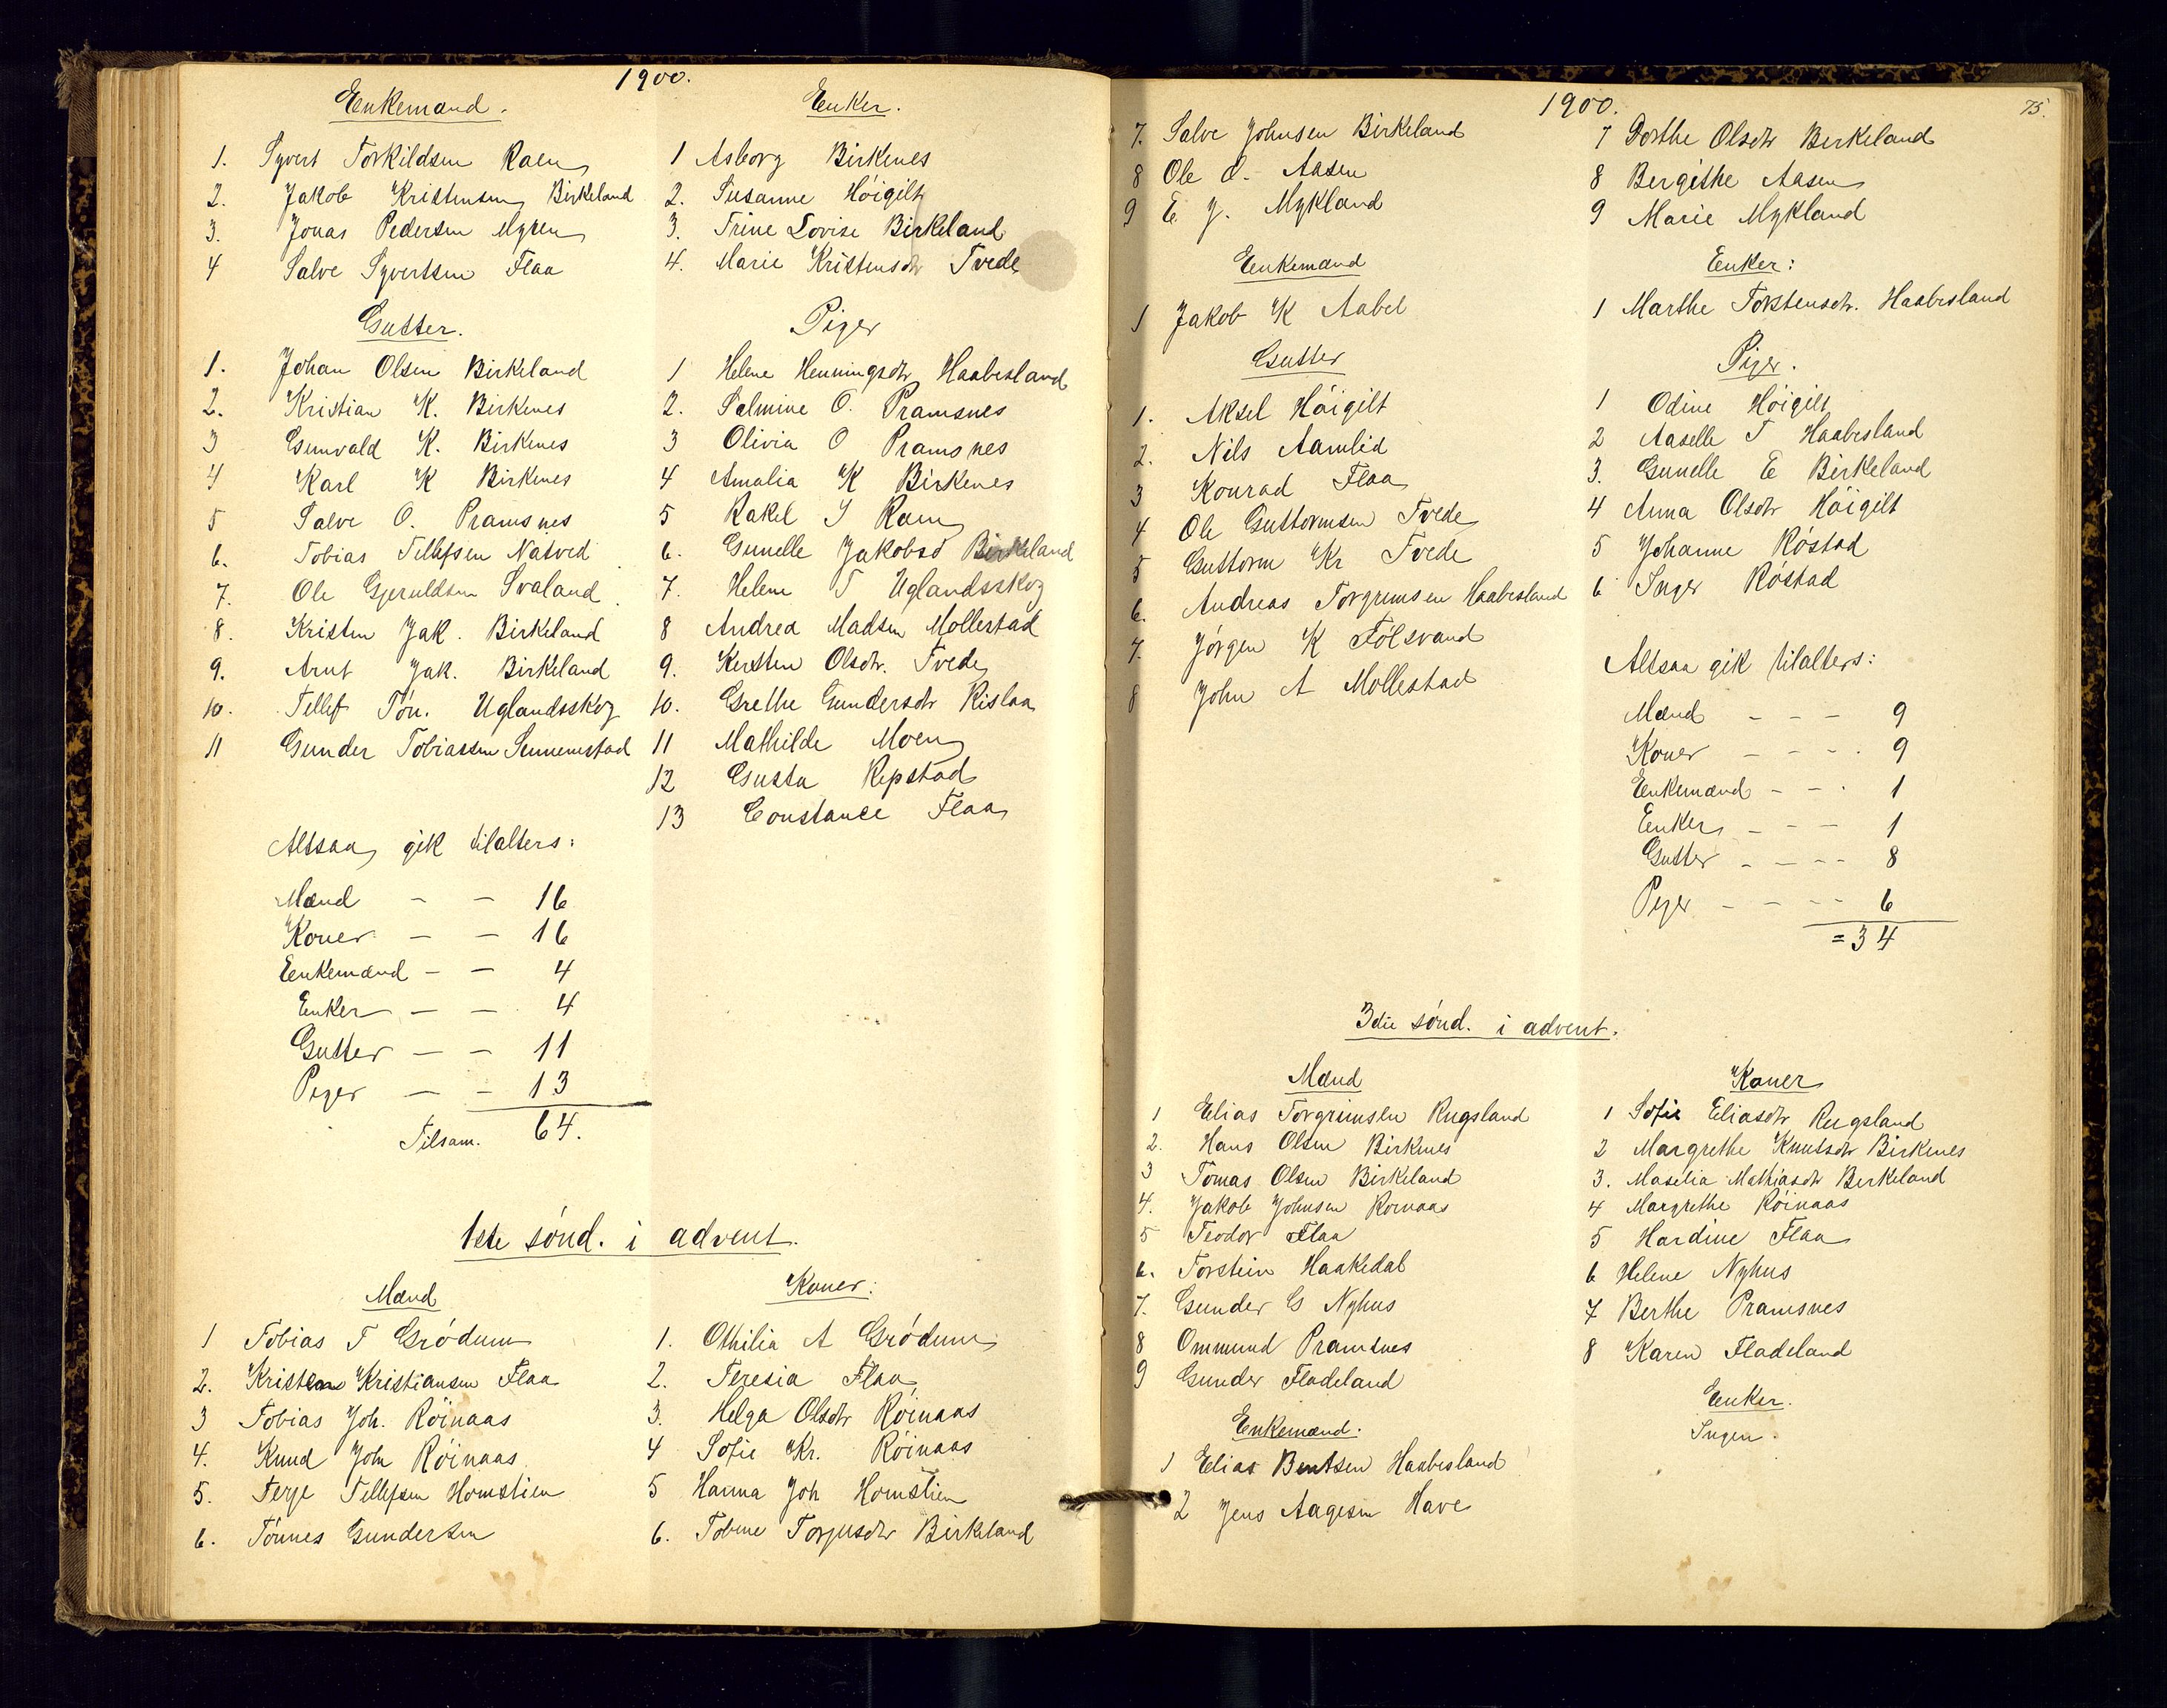 1900.
Enkemænd.
1. Syvert Torkildsen Raen
2. Jakob Kristensen Birkeland
3. Jonas Pedersen Myren
4 Salve Syvertsen Flaa
Enker.
1 Asborg Birkenes
2. Susanne Höigilt
3. Trine Lovise Birkeland
4. Marie Kristensdtr Tvede
Gutter.
1. Johan Olsen Birkeland
2. Kristian K. Birkenes
3 Gunvald K. Birkenes
4 Karl K Birkenes
5 Salve O. Pramsnes
6. Tobias Tellefsen Natved
7. Ole Gjeruldsen Svaland
8. Kristen Jak. Birkeland
9. Arnt Jak. Birkeland
10. Tellef Tön. Uglandsskog
11 Gunder Tobiassen Sennumstad
Piger
1 Helene Henningsdtr Haabesland
2. Salmine O. Pramsnes
3 Olivia O Pramsnes
4 Amalia K Birkenes
5 Rakel S Raen
6. Gunelle Jakobsd Birkeland
7. Helene T Uglandsskog
8 Andrea Madsen Mollestad
9. Kersten Olsdtr. Tvede
10. Grethe Gundersdtr Rislaa
11 Mathilde Moen
12 Gusta Repstad
13 Constance Flaa
Altsaa gik tilalters:
Mænd – – 16
Koner – – 16
Enkemænd – – 4
Enker – – 4
Gutter – – 11
Piger – – 13
Tilsam. 64.
1ste sönd. i advent.
Mænd
1 Tobias T Grödum
2. Kristen Kristiansen Flaa
3 Tobias Joh. Röinaas
4. Knud Joh Röinaas
5. Terje Tellefsen Homstien
6. Tönnes Gundersen
Koner:
1. Othilia A Grödum
2. Teresia Flaa
3. Helga Olsdtr Röinaas
4 Sofie Kr. Röinaas
5 Hanna Joh Homstien
6. Tobine Torjusdtr Birkeland
1900.
75.
7. Salve Johnsen Birkeland
8 Ole O. Aasen
9 E J. Mykland
7 Dorthe Olsdtr Berkeland
8 Bergithe Aasen
9 Marie Mykland
Enkemænd
1 Jakob K Aabel
Enker:
1 Marthe Torstensdtr. Haabesland
Gutter
1. Aksel Höigilt
2. Nils Aamlid
3 Konrad Flaa
4 Ole Guttormsen Tvede
5 Guttorm Kr Tvede
6. Andreas Torgrimsen Haabesland
7. Jörgen K Fölsvand
8 John A Mollestad
Piger.
1 Odine Höigilt
2 Aaselle T Haabesland
3. Gunelle E Birkeland
4 Anna Olsdtr Höigilt
5 Johanne Röstad
6 Inger Röstad
Altsaa gik tilalters:
Mænd – – – 9
Koner – – – 9
Enkemænd – – 1
Enker – – – 1
Gutter – – – – 8
Piger – – – – 6
= 34
3die sönd. i advent.
Mænd
1 Elias Torgrimsen Rugsland
2. Hans Olsen Birkenes
3 Tomas Olsen Birkeland
4. Jakob Johnsen Roinaas
5 Teodor Flaa
6. Torstein Haakedal
7. Gunder G Nyhus
8 Ommund Pramsnes
9 Gunder Fladeland
Koner
1 Sofie Eliasdtr Rugsland
2 Margrethe Knutsdtr Birkenes
3. Maselia Mathiasdtr Berkeland
4 Margrethe Röinaas
5 Hardine Flaa
6 Helene Nyhus
7 Berthe Pramsnes
8 Karen Fladeland
Enkemænd:
1 Elias Bentsen Haabesland
2 Jens Aagesen Have
Enker.
Ingen.